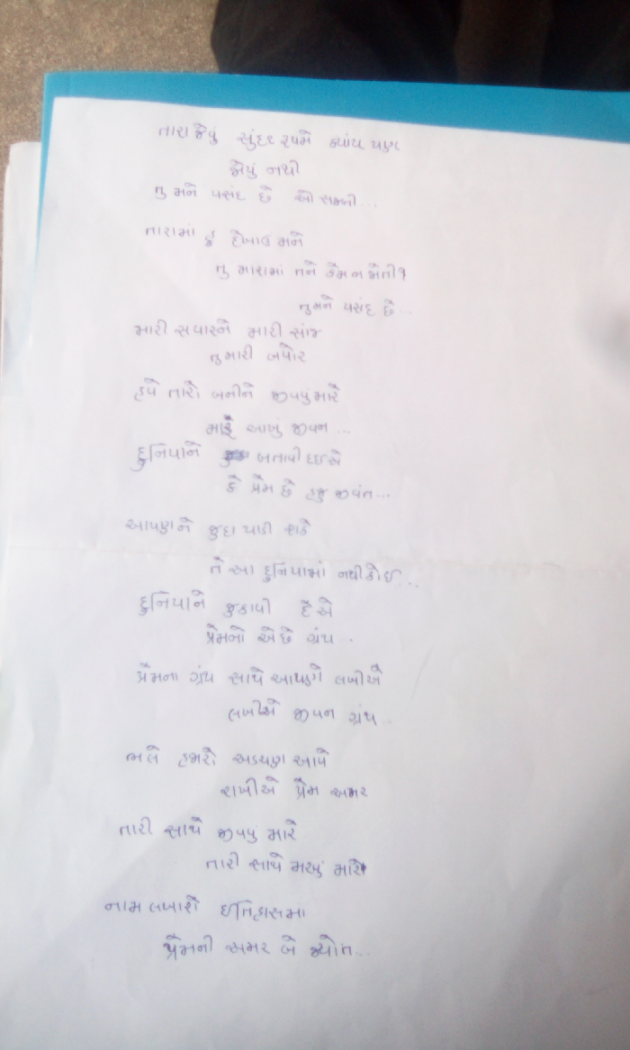 તારા જેવું સુંદર રૂપમે ક્યાંય પણ
જોયું નથી
તુ મને પસંદ છે ઓ સજની...
તારામાં હું દેખાઉ મને
તુ મારામાં તને કેમ ન જોતી?
તુ મને પસંદ છે..
મારી સવારને મારી સાંજ
તુ મારી બપોર
હવે તારો બનીને જીવવુ મારે
મારે આખું જીવન...
દુનિયાને બતાવી દઈએ
કે પ્રેમ છે હજુ જીવંત...
આપણને જુદા પાડી શકે
તે આ દુનિયામાં નથી કોઈ...
દુનિયાને જુકાવી દે એ
પ્રેમનો એ છે ગ્રંથ.
પ્રેમના ગ્રંથ સાથે આપણે લખીએ
લખીએ જીવન ગ્રંથ..
ભલે હમરો અડચણ આવે
રાખીએ પ્રેમ અમર
તારી સાથે જીવવું મારે
તારી સાથે મરવું મારે
નામ લખાશે ઈતિહાસમા
પ્રેમની અમર બે જ્યોત...